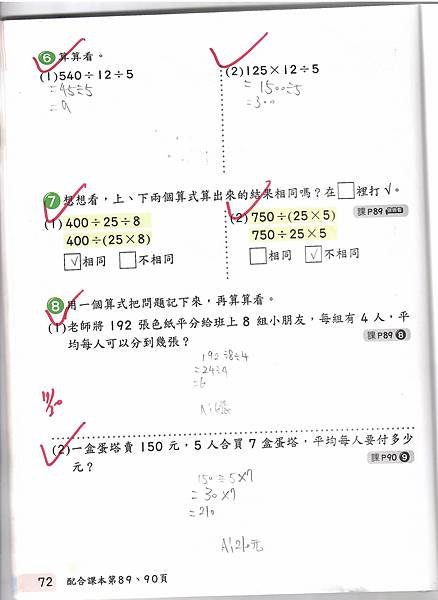 6 算算看。
(1)540÷12÷5
=45÷5
=9
(2)125×12÷5
=1500÷5
=300
7 想想看，上、下兩個算式算出來的結果相同嗎？在□裡打√。
課P89
(1)400÷25÷8
400÷(25×8)
√相同 □不相同
(2)750÷(25×5)
750÷25×5
□相同 √不相同
8 用一個算式把問題記下來，再算算看。
(1)老師將 192 張色紙平分給班上 8 組小朋友，每組有 4 人，平
均每人可以分到幾張？
課P89 8
192÷8÷4
=24÷4
=6
A:6張
(2)一盒蛋塔賣 150 元，5 人合買 7 盒蛋塔，平均每人要付多少
元？
課P90 9
150÷5×7
=30×7
=210
A:210元
72 配合課本第89、90頁